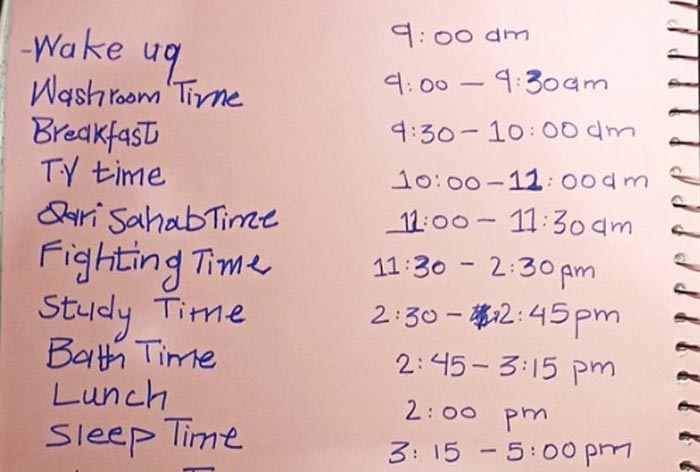 -Wake up 9:00 am
Washroom Time 9:00 - 9:30am
Breakfast 9:30 - 10:00 am
T.V time 10:00 - 11:00am
Qari Sahab Time 11:00 - 11:30am
Fighting Time 11:30 - 2:30pm
Study Time 2:30 - 2:45pm
Bath Time 2:45 - 3:15 pm
Lunch 2:00 pm
Sleep Time 3:15 - 5:00pm